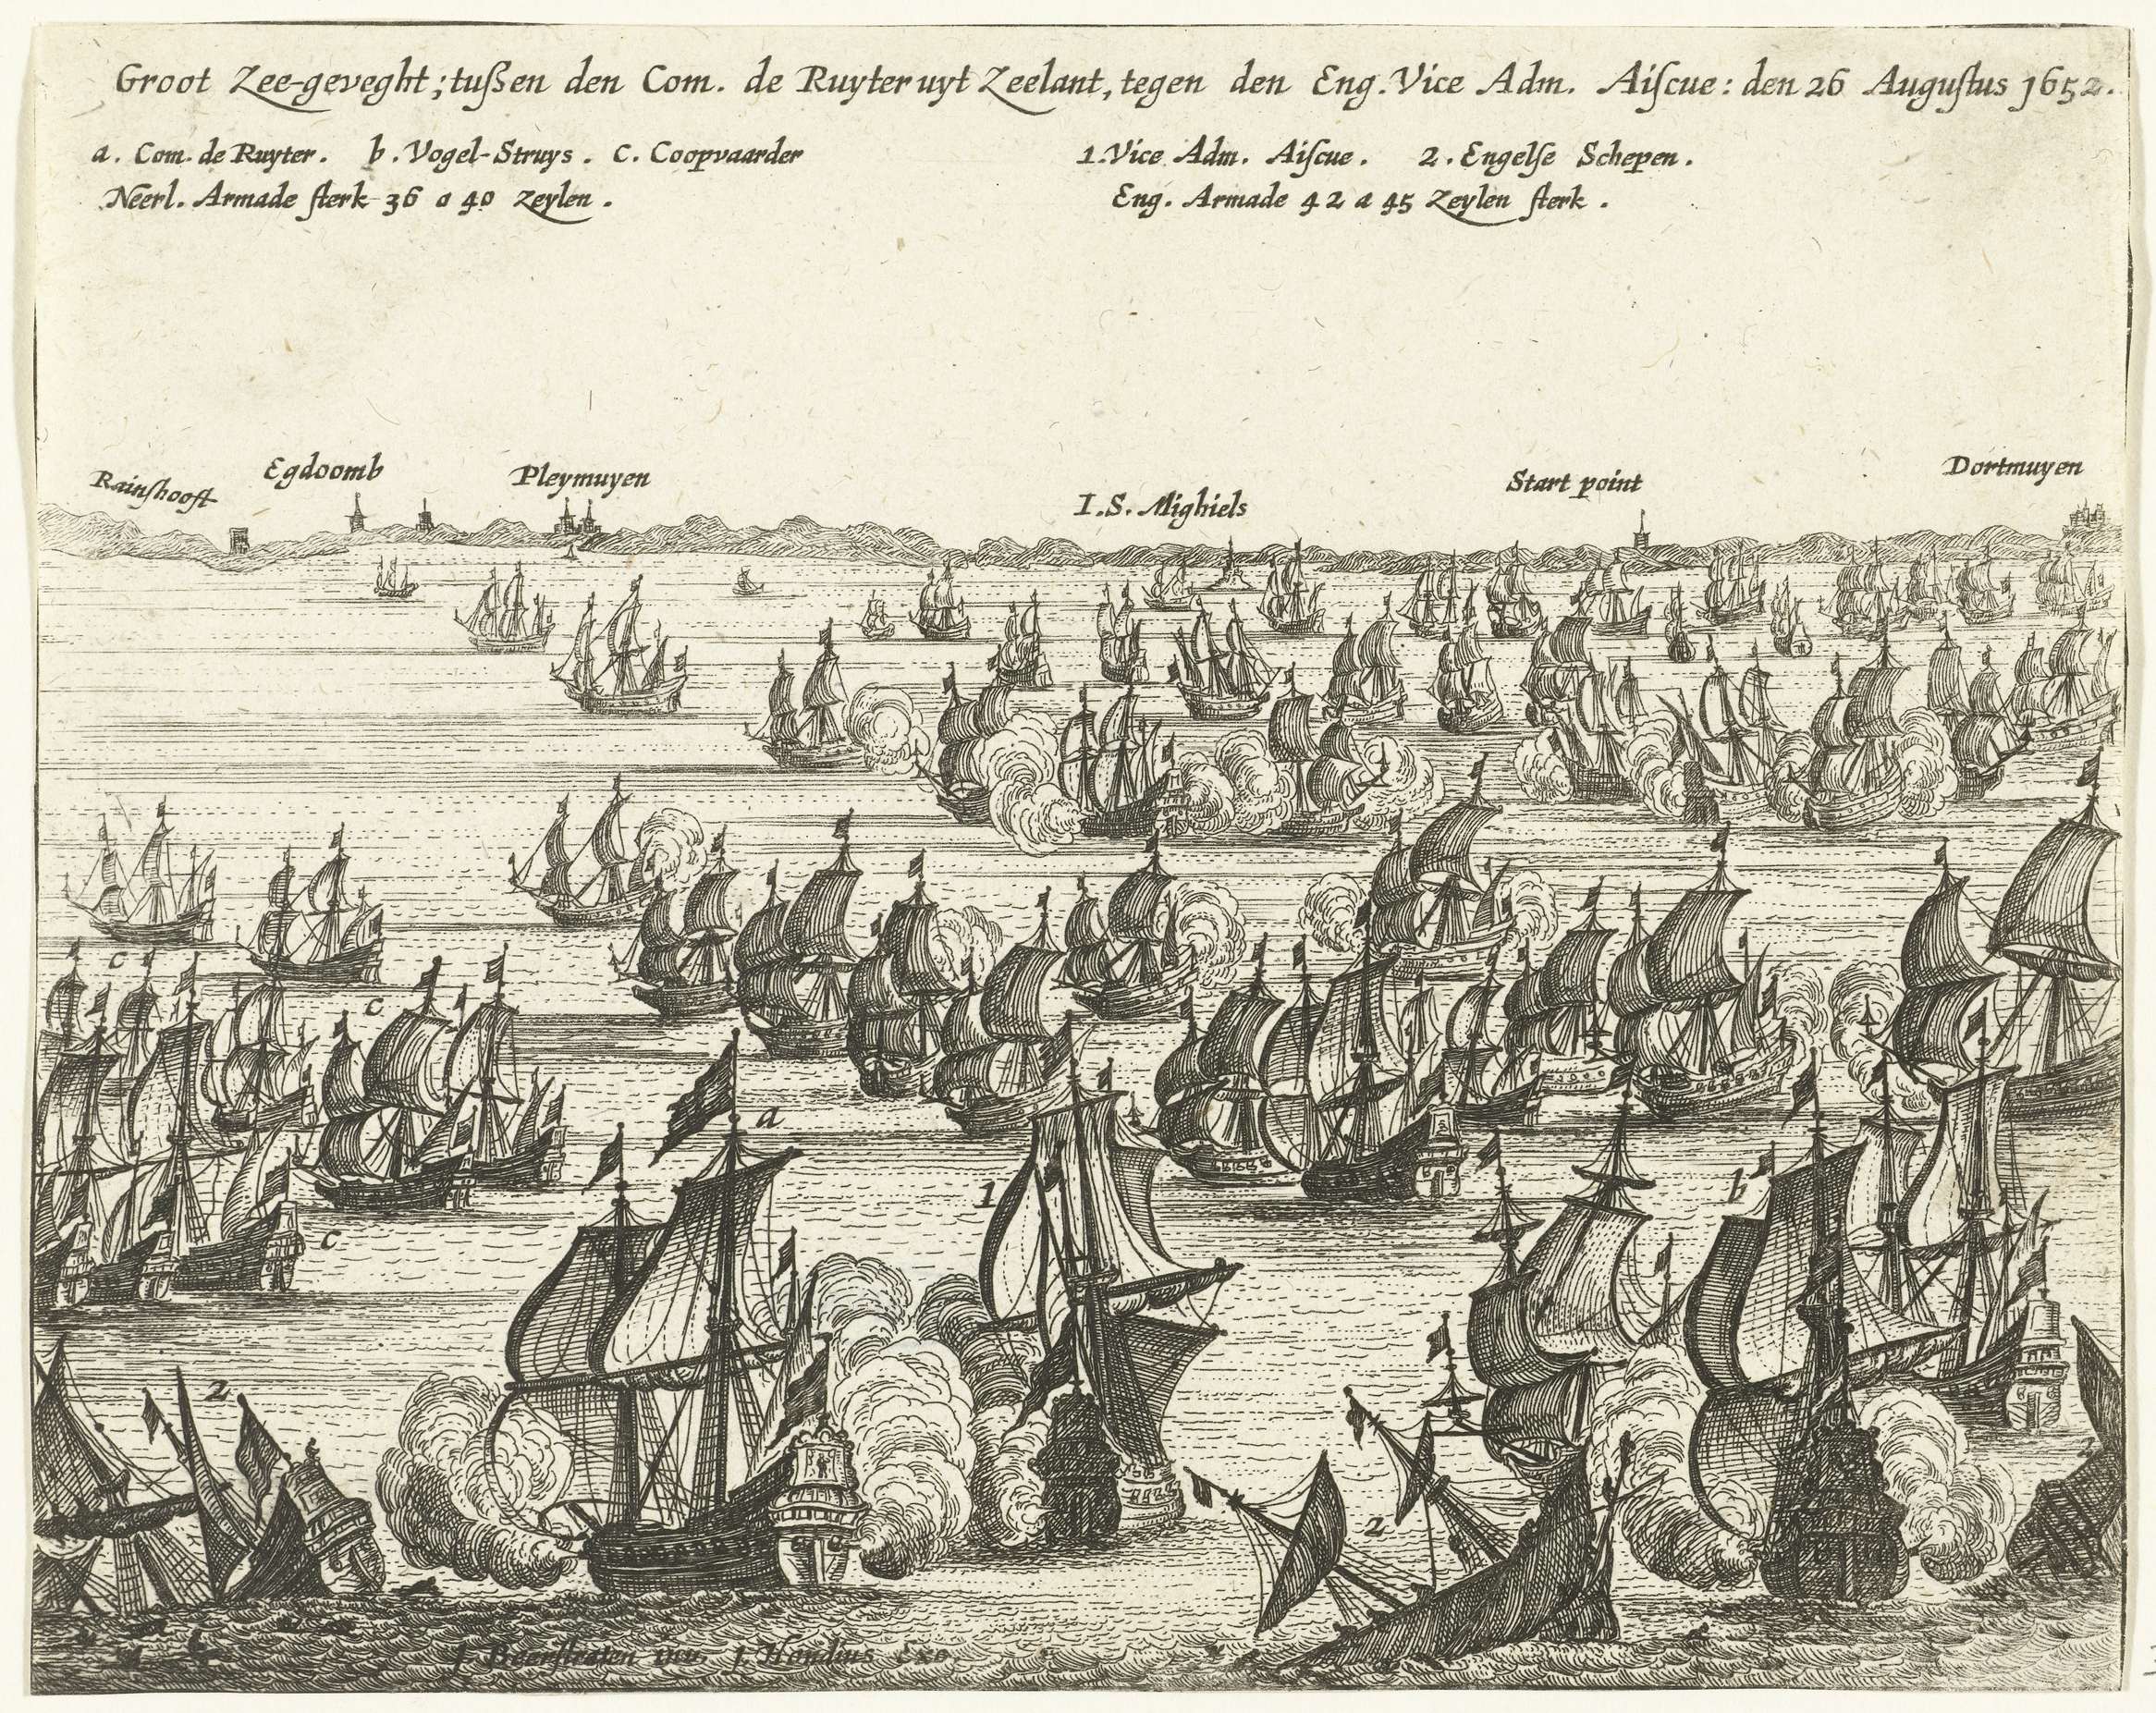 Groot Zee-geveght; tuſsen den Com. de Ruyter uyt Zeelant, tegen den Eng. Vice Adm. Aiſcue: den 26 Auguſtus 1652.
a. Com. de Ruyter. b. Vogel-Struys. c. Coopvaarder
Neerl. Armade ſterk 36 a 40 zeylen.
1. Vice Adm. Aiſcue. 2. Engelſe Schepen.
Eng. Armade 42 a 45 Zeylen ſterk.
Rainſhooft
Egdoomb
Pleymuyen
I.S. Mighiels
Start point
Dortmuyen
c
c
a
1
b
c
2
2
2
J. Beerſtraten inv. J. Hondius Exc.